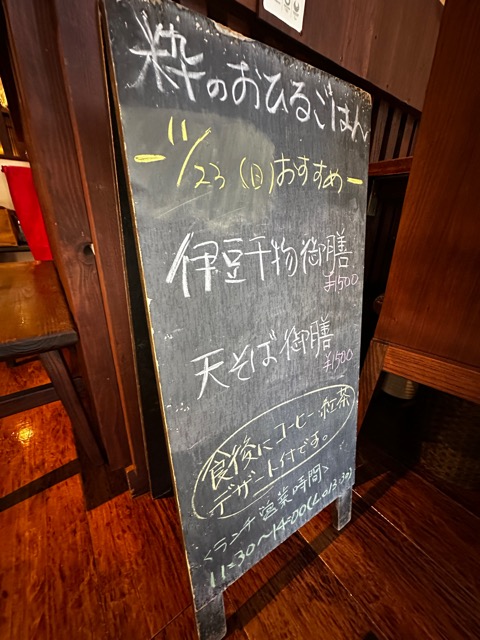 粋のおひるごはん
ー11/23(日)おすすめー
伊豆干物御膳
¥1500
天そば御膳
¥1500
食後にコーヒー・紅茶
デザート付です。
〈ランチ営業時間〉
11:30〜14:00(L.O13:30)